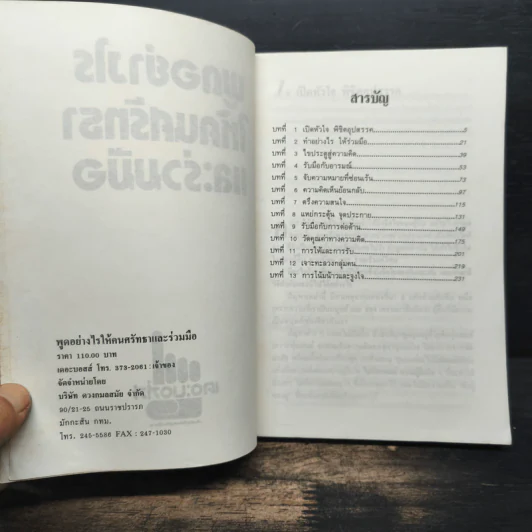 พูดอย่างไรให้คนศรัทธาและร่วมมือ
ราคา 110.00 บาท
เดอะบอสส์ โทร. 373-2061 : เจ้าของ
จัดจำหน่ายโดย
บริษัท ดวงกมลสมัย จำกัด
90/21-25 ถนนราชปรารภ
มักกะสัน กทม.
โทร. 245-5586 FAX : 247-1030
สารบัญ
บทที่ 1 เปิดหัวใจ พิชิตอุปสรรค 3
บทที่ 2 ทำอย่างไร ให้ร่วมมือ 21
บทที่ 3 ไขประตูสู่ความคิด 39
บทที่ 4 รับมือกับอารมณ์ 53
บทที่ 5 จับความหมายที่ซ่อนเร้น 73
บทที่ 6 ความคิดเห็นย้อนกลับ 97
บทที่ 7 ตรึงความสนใจ 115
บทที่ 8 แหย่กระตุ้น จุดประกาย 131
บทที่ 9 รับมือกับการต่อต้าน 149
บทที่ 10 วัดคุณค่าทางความคิด 175
บทที่ 11 การให้และการรับ 201
บทที่ 12 เจาะทะลวงกลุ่มคน 219
บทที่ 13 การโน้มน้าวและจูงใจ 231